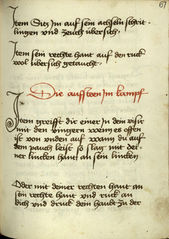 67
Item Sitz Im auf sein achseln schrit
lingen vnd zeuch vbersich
Item sein rechte hant auf den ruck
wol vbersich getaucht
Die ausstoen Im kampf
Item greifft die einer In dein visir
mit den vingern wenn es offen
ist von vnden auf wann du auf
dem pauch leist so slag mit dei
ner lincken hant an sein lincken
Oder mit deiner rechten hant an
sein rechte hant vnd ruck an
dich vnd druck dein haubt zu der